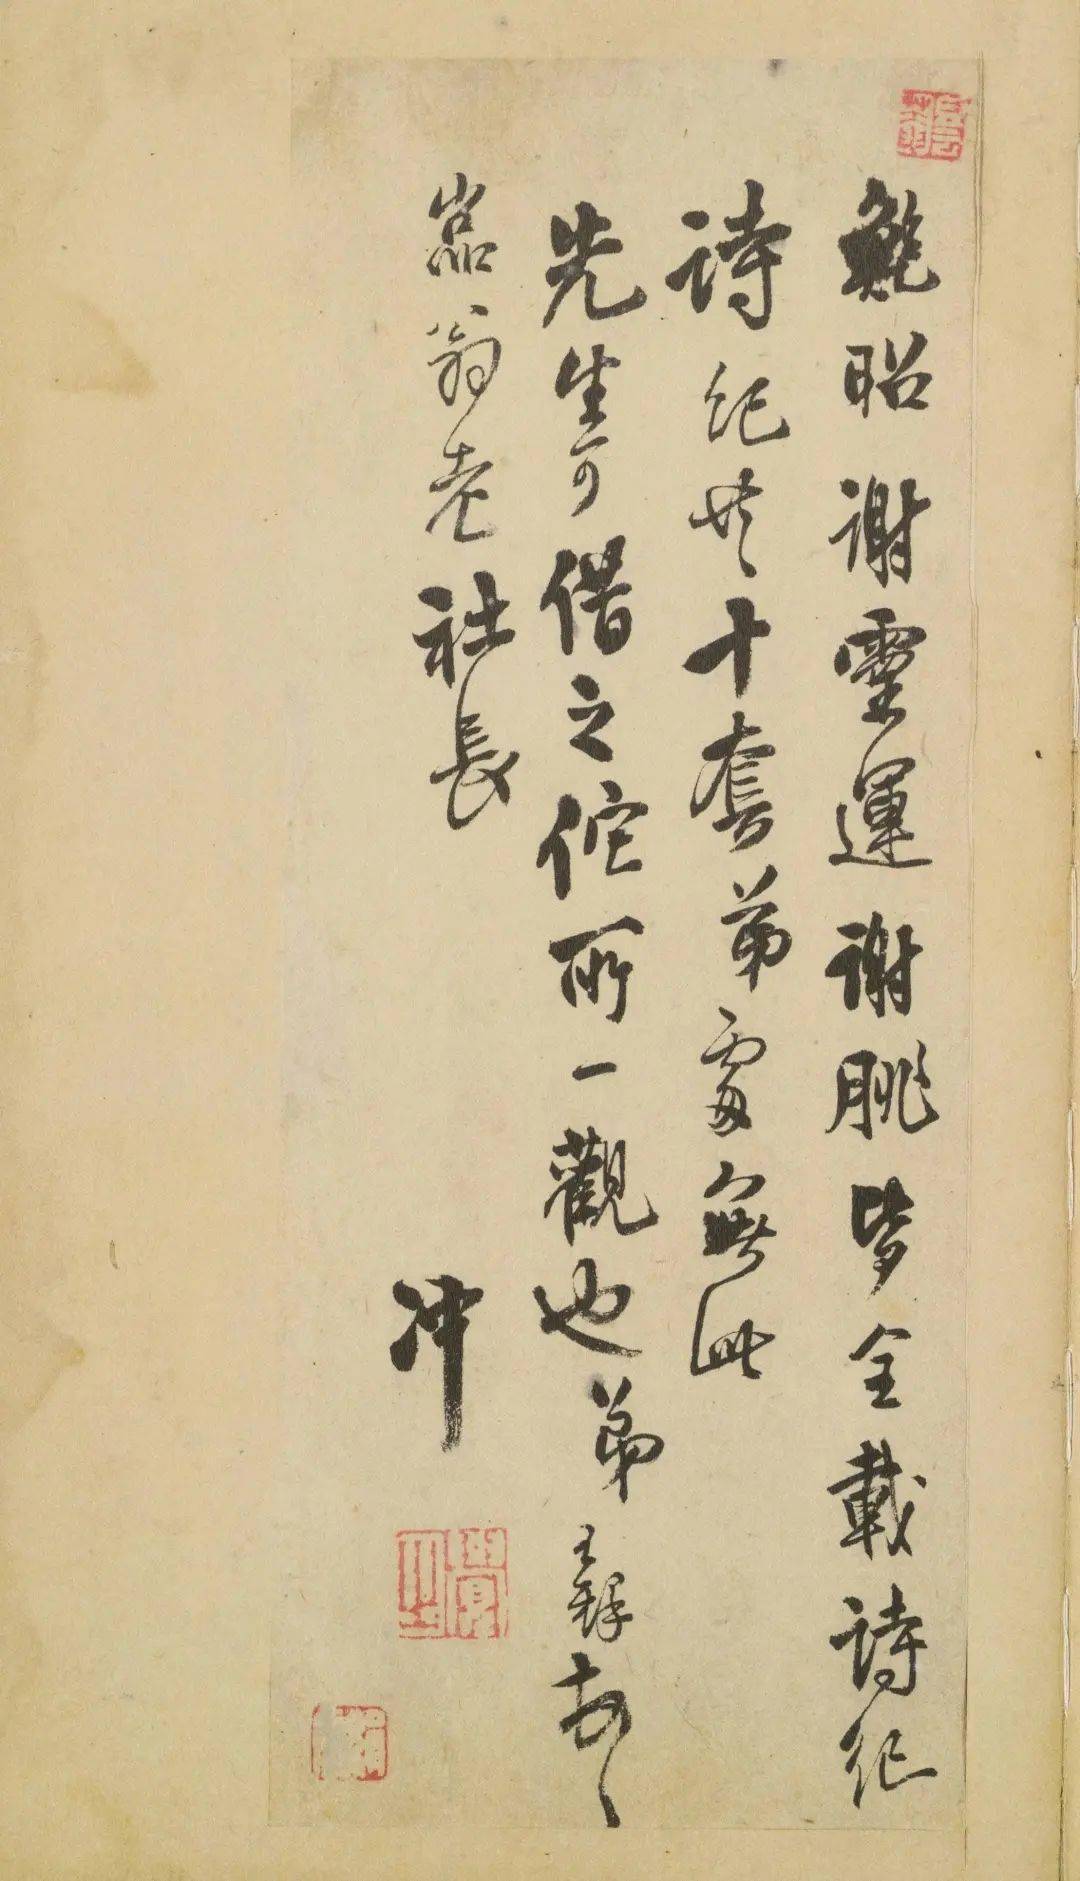 鮑昭謝靈運謝朓皆全載詩紀
詩紀共十套弟處無此
先生可借之佗所一觀也弟王穉
嵓翁老社長
冲